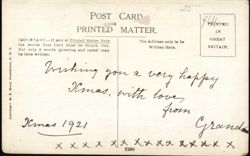 POST CARD
PRINTED MATTER.
IMPORTANT.—If sent at Printed Matter Rate
the words Post Card Must be Struck Out.
But only 5 words (greeting and name) may
be thus written.
The Address only to be
Written Here.
PRINTED
IN
GREAT
BRITAIN.
Wishing you a very happy
Xmas, with love
from
Xmas 1921
Grandma
x x x x x x x x x x x x x
2299